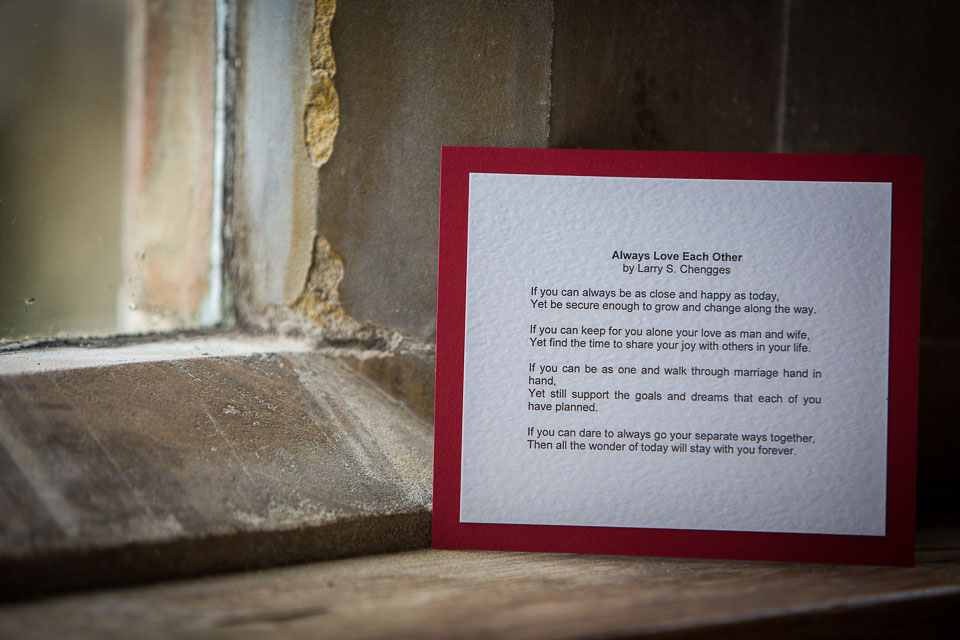 Always Love Each Other
by Larry S. Chengges
If you can always be as close and happy as today,
Yet be secure enough to grow and change along the way.
If you can keep for you alone your love as man and wife,
Yet find the time to share your joy with others in your life.
If you can be as one and walk through marriage hand in
hand,
Yet still support the goals and dreams that each of you
have planned.
If you can dare to always go your separate ways together,
Then all the wonder of today will stay with you forever.